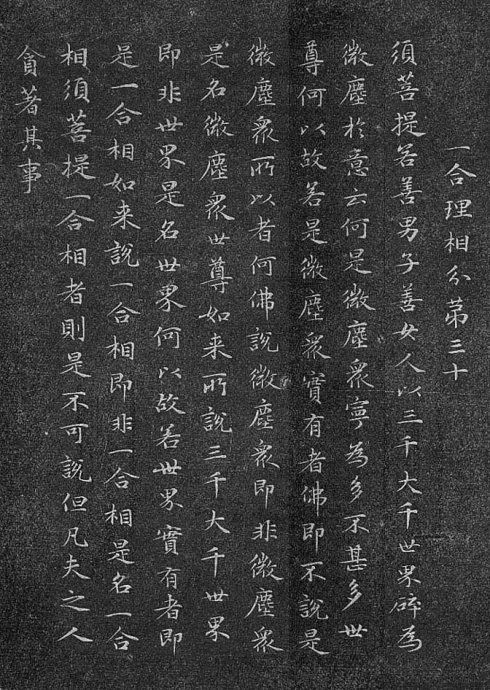 一合理相分第三十
須菩提若善男子善女人以三千大千世界碎為
微塵於意云何是微塵衆寧為多不甚多世
尊何以故若是微塵衆實有者佛即不說是
微塵衆所以者何佛說微塵衆即非微塵衆
是名微塵衆世尊如来所說三千大千世界
即非世界是名世界何以故若世界實有者即
是一合相如来說一合相即非一合相是名一合
相須菩提一合相者則是不可說但凡夫之人
貪著其事